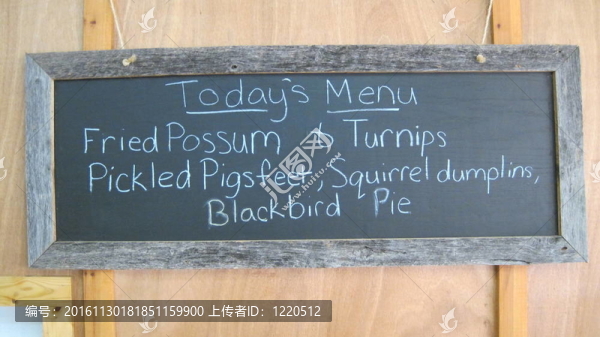 Today's Menu
Fried Possum & Turnips
Pickled Pigsfeet, Squirrel dumplins,
Blackbird Pie
汇图网
www.huitu.com
编号：20161130181851159900 上传者ID：1220512